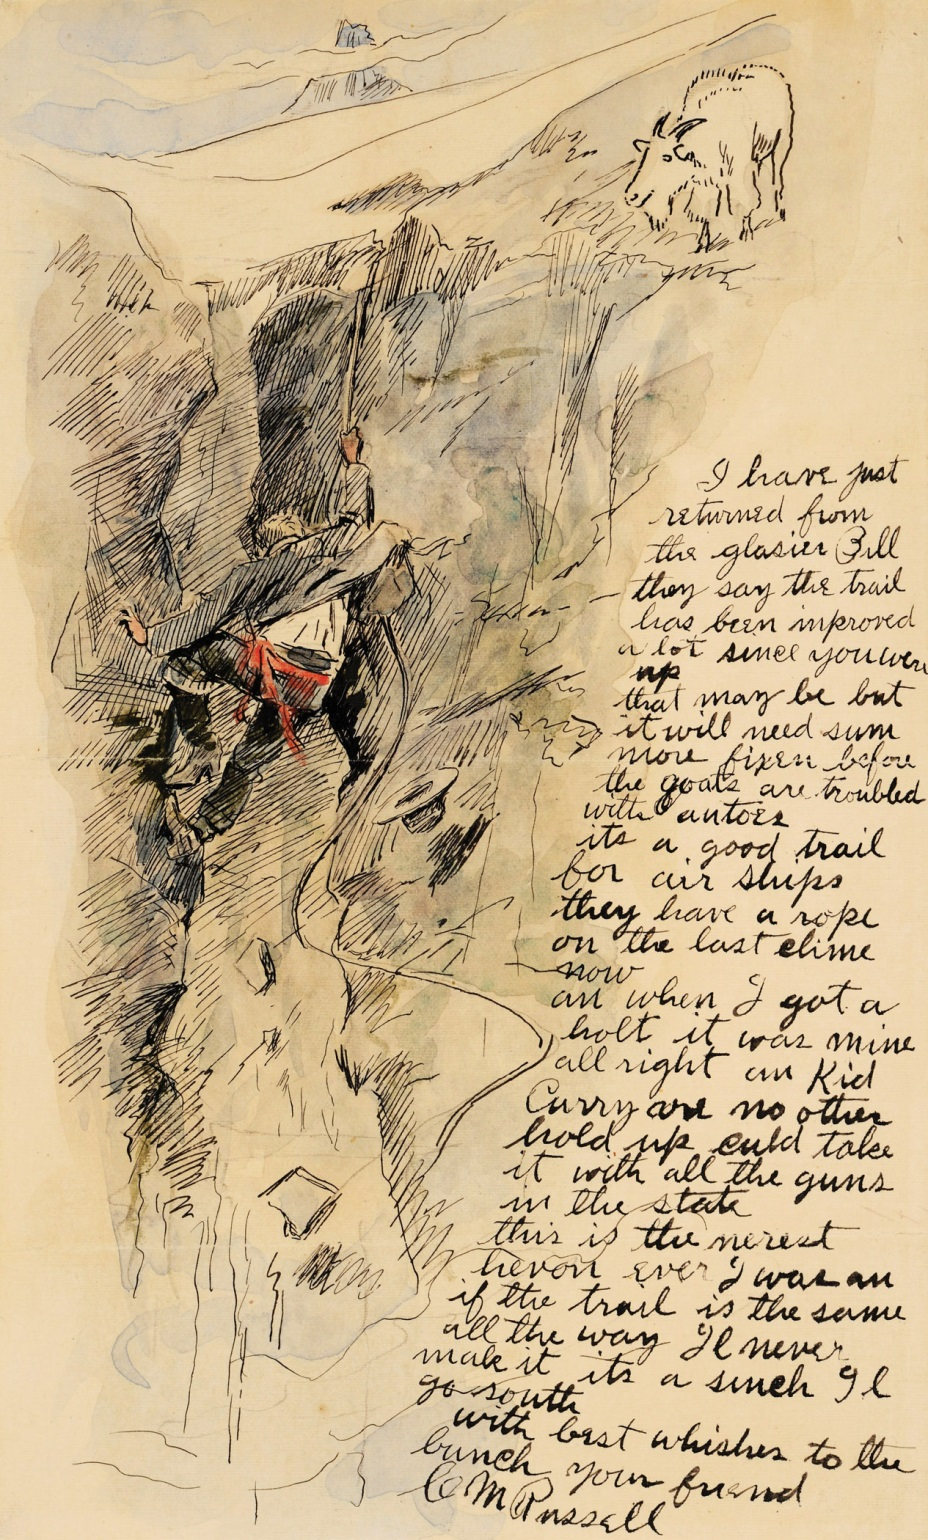 I have just
returned from
the glasier Bill
they say the trail
has been inproved
a lot since you were
up
that may be but
it will need sum
more fixen before
the goats are troubled
with autoes
its a good trail
for air ships
they have a rope
on the last clime
now
an when I got a
holt it was mine
all right an Kid
Curry are no other
hold up culd take
it with all the guns
in the state
this is the nerest
hevon ever I was an
if the trail is the same
all the way Il never
make it its a sinch Il
go south
with best whishes to the
bunch your friend
CM Russell